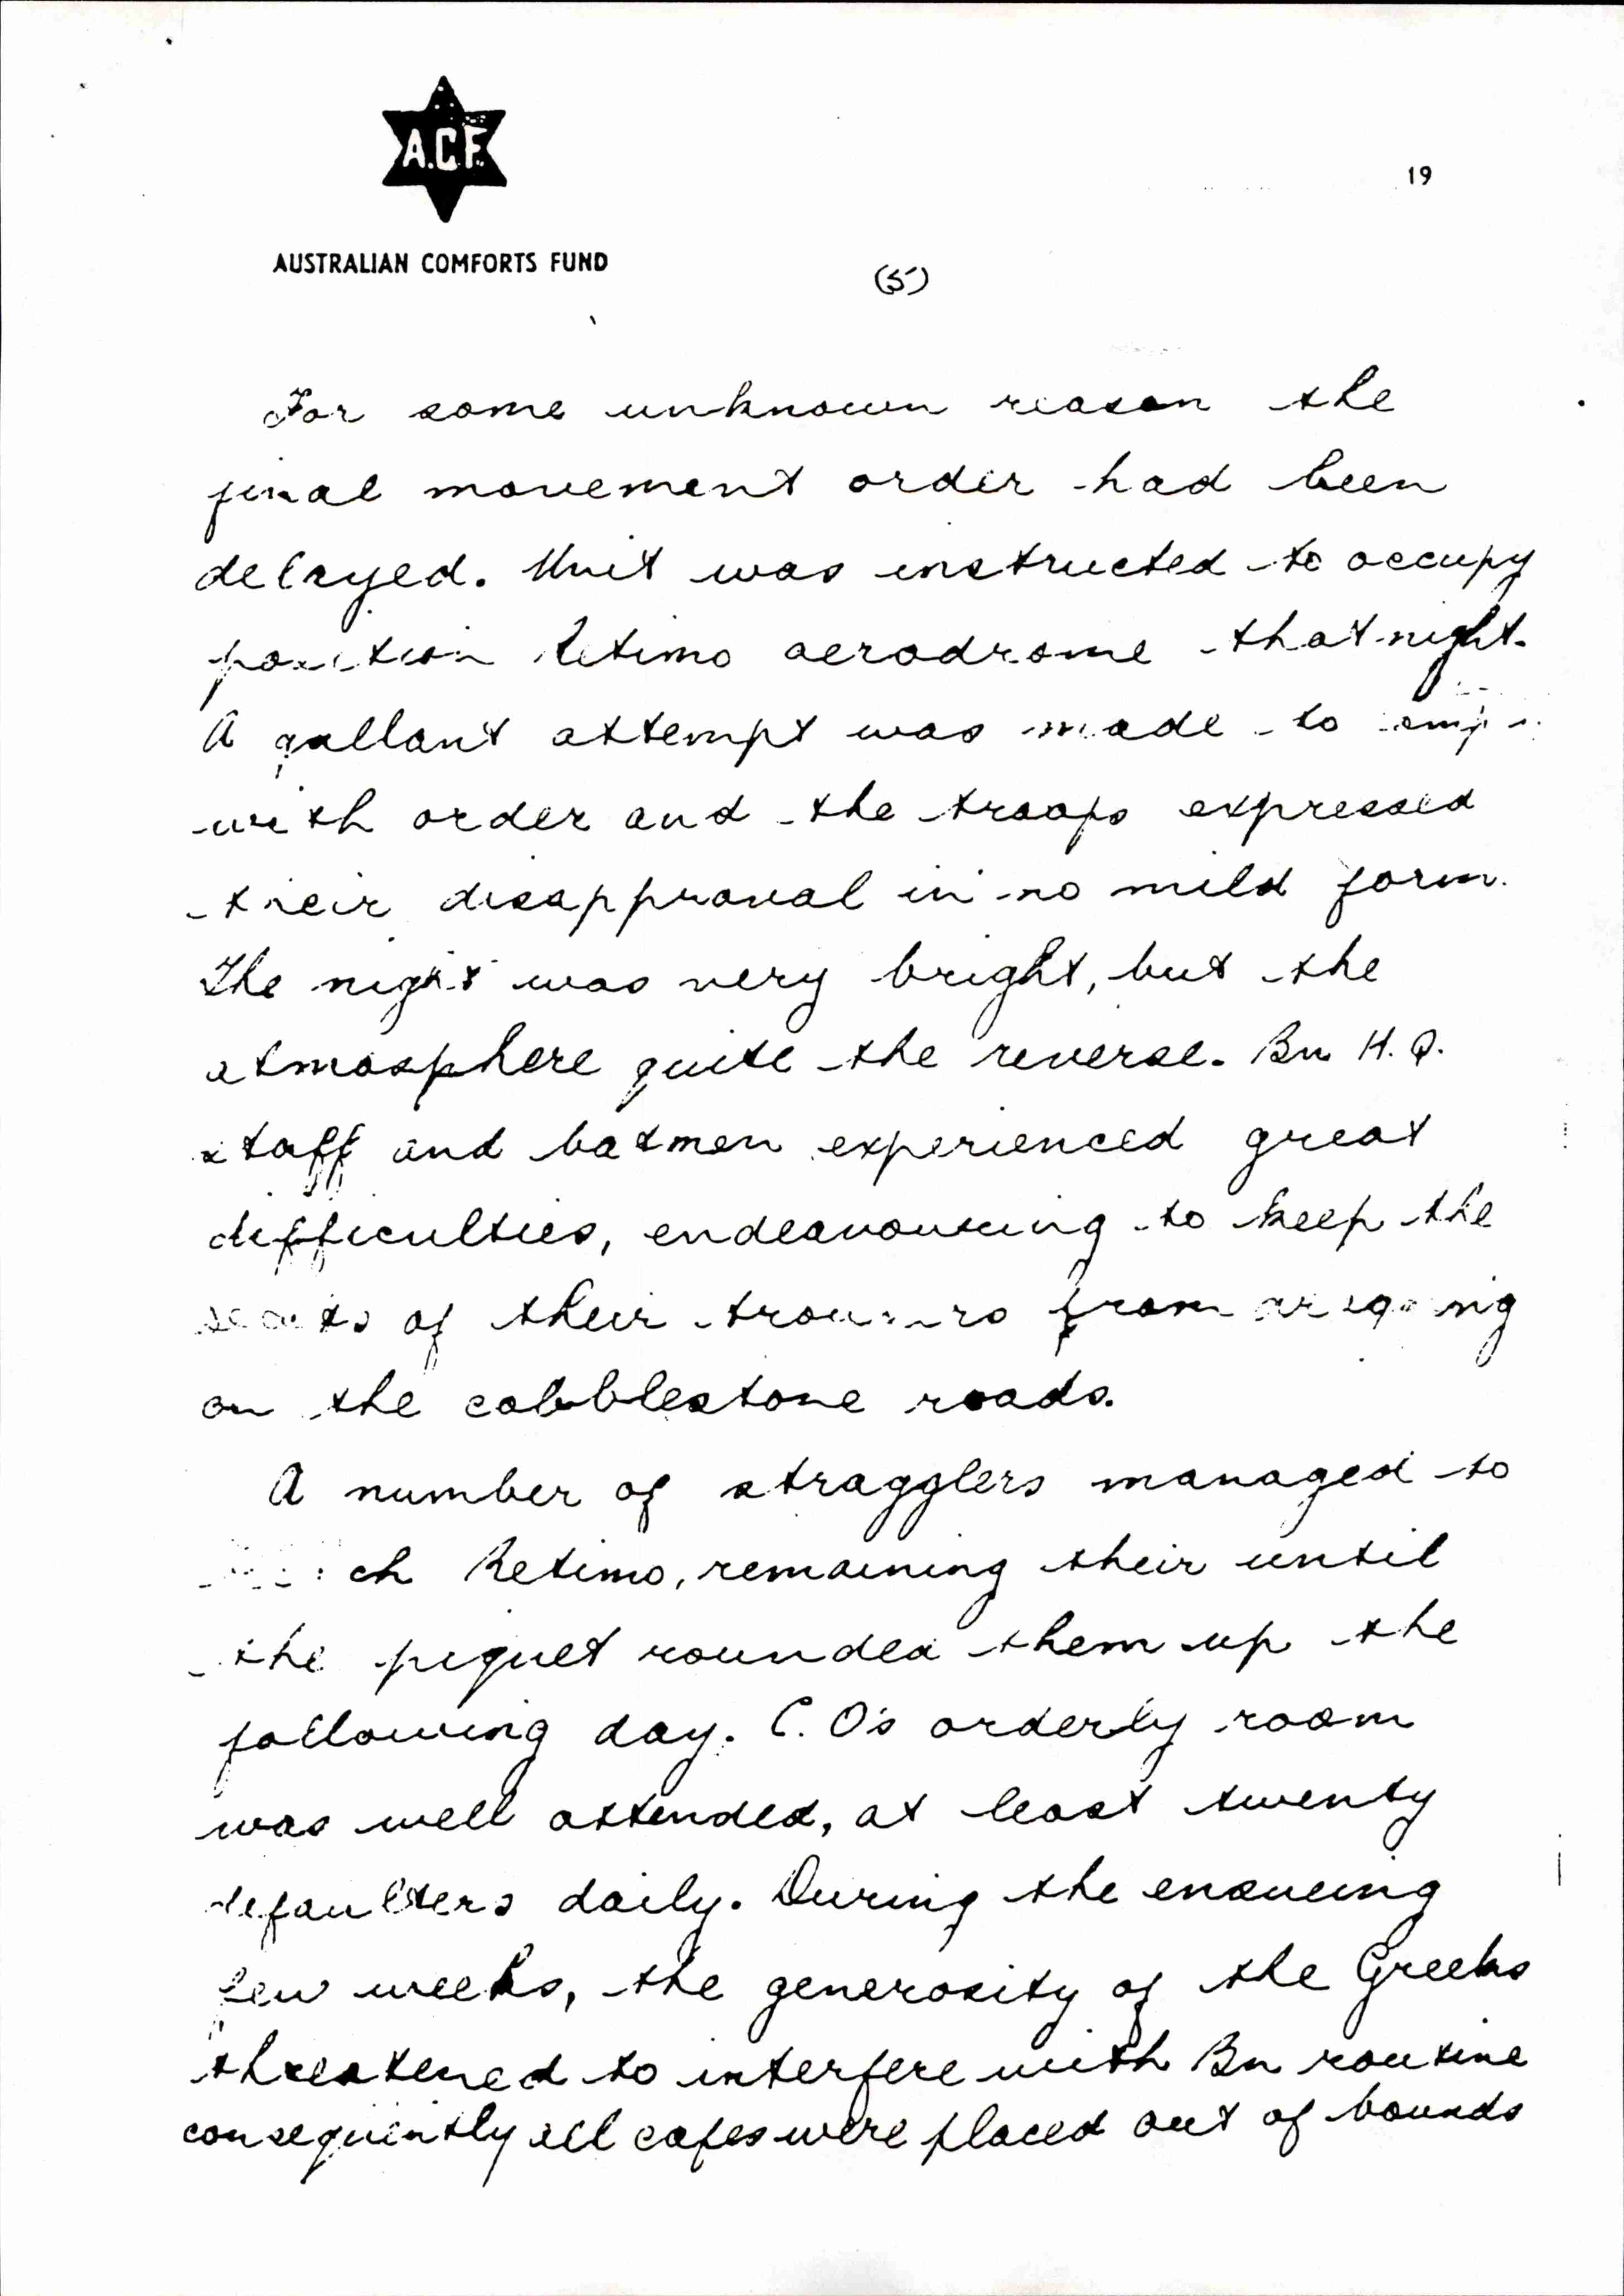 A.C.F.
19
AUSTRALIAN COMFORTS FUND
(5)
For some unknown reason the
final movement order had been
delayed. Unit was instructed to occupy
position Retimo aerodrome that night.
A gallant attempt was made to
with order and the troops expressed
their disapproval in no mild form.
The night was very bright, but the
atmosphere quite the reverse. Bn H.Q.
staff and batmen experienced great
difficulties, endeavouring to keep the
seats of their trousers from
on the cobblestone roads.
A number of stragglers managed to
Retimo, remaining their until
the piquet rounded them up the
following day. C.O's orderly room
was well attended, at least twenty
defaulters daily. During the ensueing
few weeks, the generosity of the Greeks
threatened to interfere with Bn routine
consequently all cafes were placed out of bounds